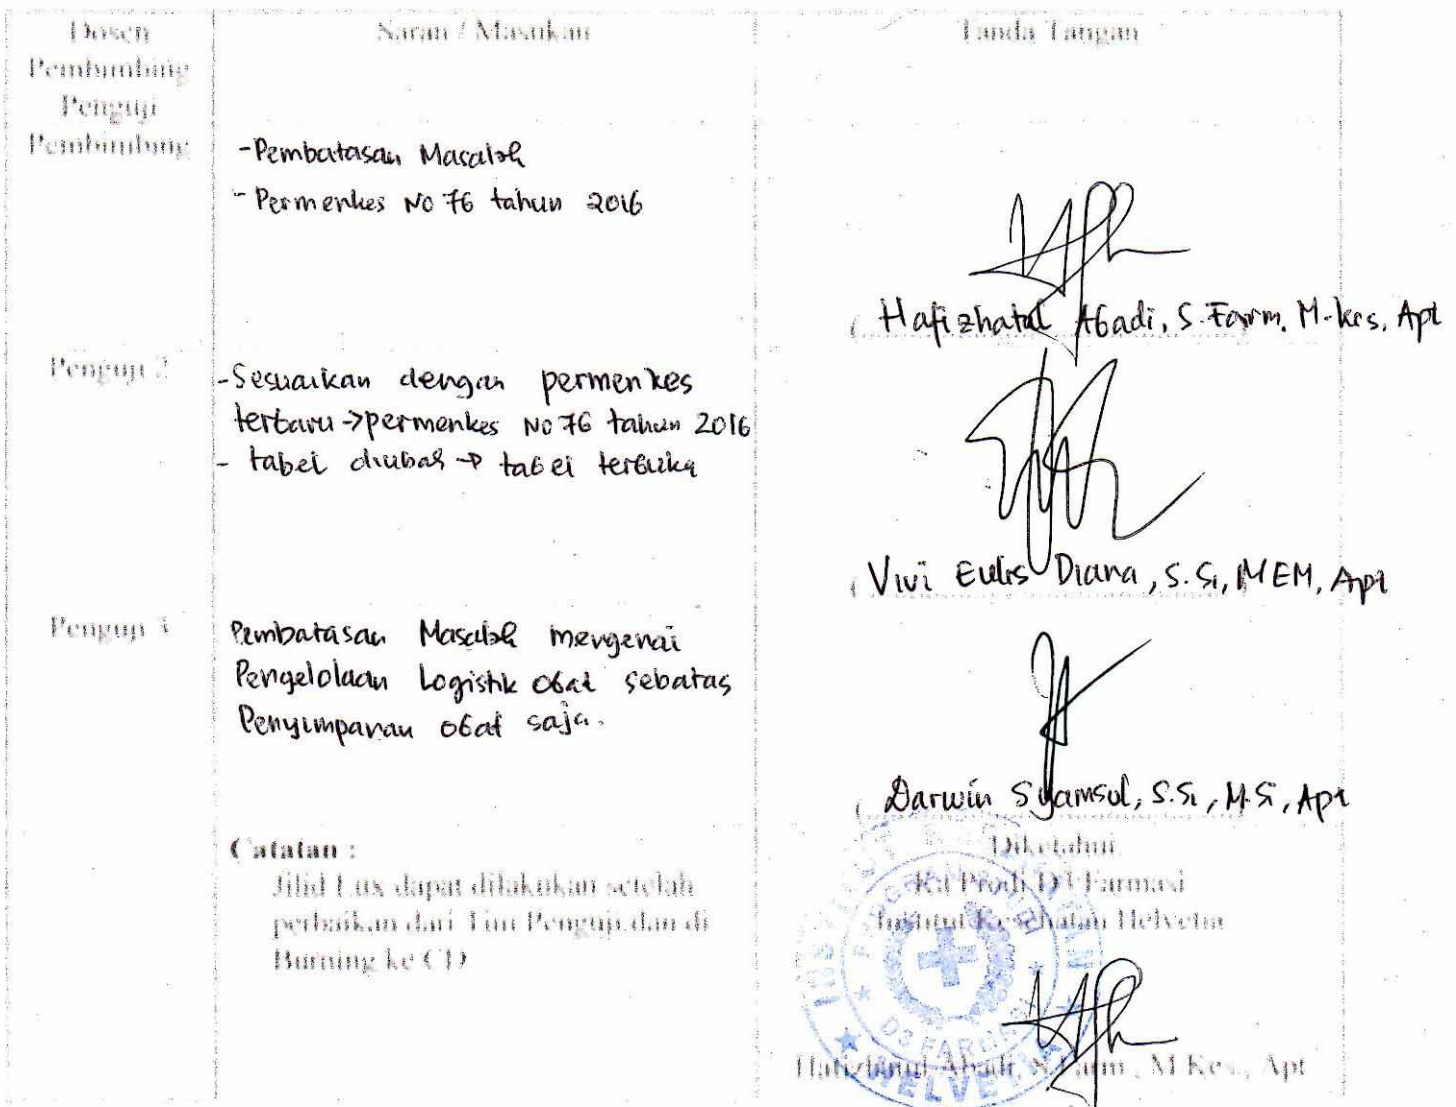 Dosen Saran / Masukan Tanda Tangan
Pembimbing
Penguji
Pembimbing
-Pembatasan Masalah
- Permenkes No 76 tahun 2016
Hafizhatul Abadi, S.Farm, M.kes, Apt
Penguji 2
-Sesuaikan dengan permenkes
terbaru->permenkes No 76 tahun 2016
- tabel diubah -> tabel terbuka
Vivi Eulis Diana, S.Si, MEM, Apt
Penguji 3
Pembatasan Masalah mengenai
Pengelolaan Logistik obat sebatas
Penyimpanan obat saja.
Darwin Syamsul, S.Si, M.Si, Apt
Catatan :
Jilid Lux dapat dilakukan setelah
perbaikan dari Tim Penguji dan di
Burning ke CD
Diketahui
Ka Prodi D3 Farmasi
Institut Kesehatan Helvetia
D3 FARMASI
HELVETIA
Hafizhatul Abadi, S.Farm., M.Kes., Apt